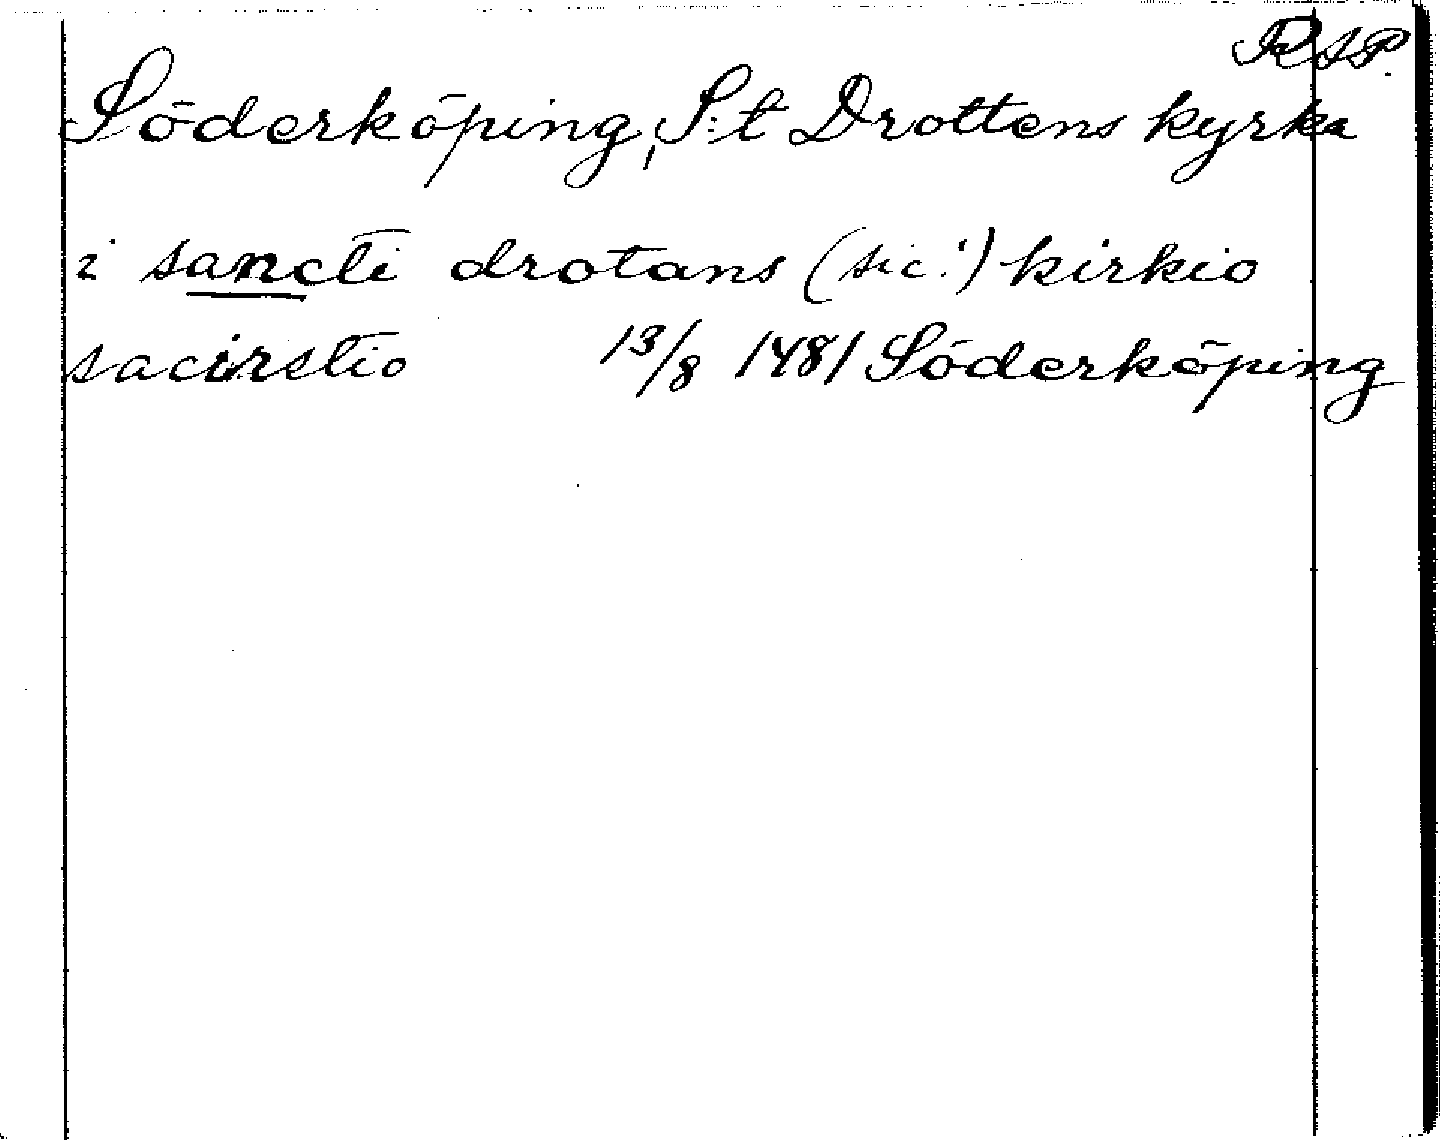 RAP.
Söderköping, S:t Drottens kyrka
i sancti drotans (sic!) kirkio
sacirstio 13/8 1481 Söderköping